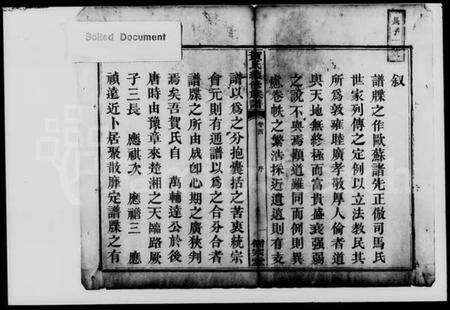 Soiled Document
叙
譜牒之作歐蘇諸先正倣司馬氏
世家列傳之定例以立法教民其
所爲敦雍睦廣孝敬厚人倫者道
與天地無終極而富貴盛衰强弱
之說不與焉顧道雖同而例則異
慮卷帙之繁浩採近遺遠則有支
譜以爲之分抱囊括之苦衷統宗
會元則有通譜以爲之合分合者
譜牒之所由成卽心期之廣狹判
焉矣吾賀氏自 萬輔達公於後
唐時由豫章來楚湘之天臨路厥
子三長 應祺次 應禧三 應
禎遠近卜居聚散靡定譜牒之有